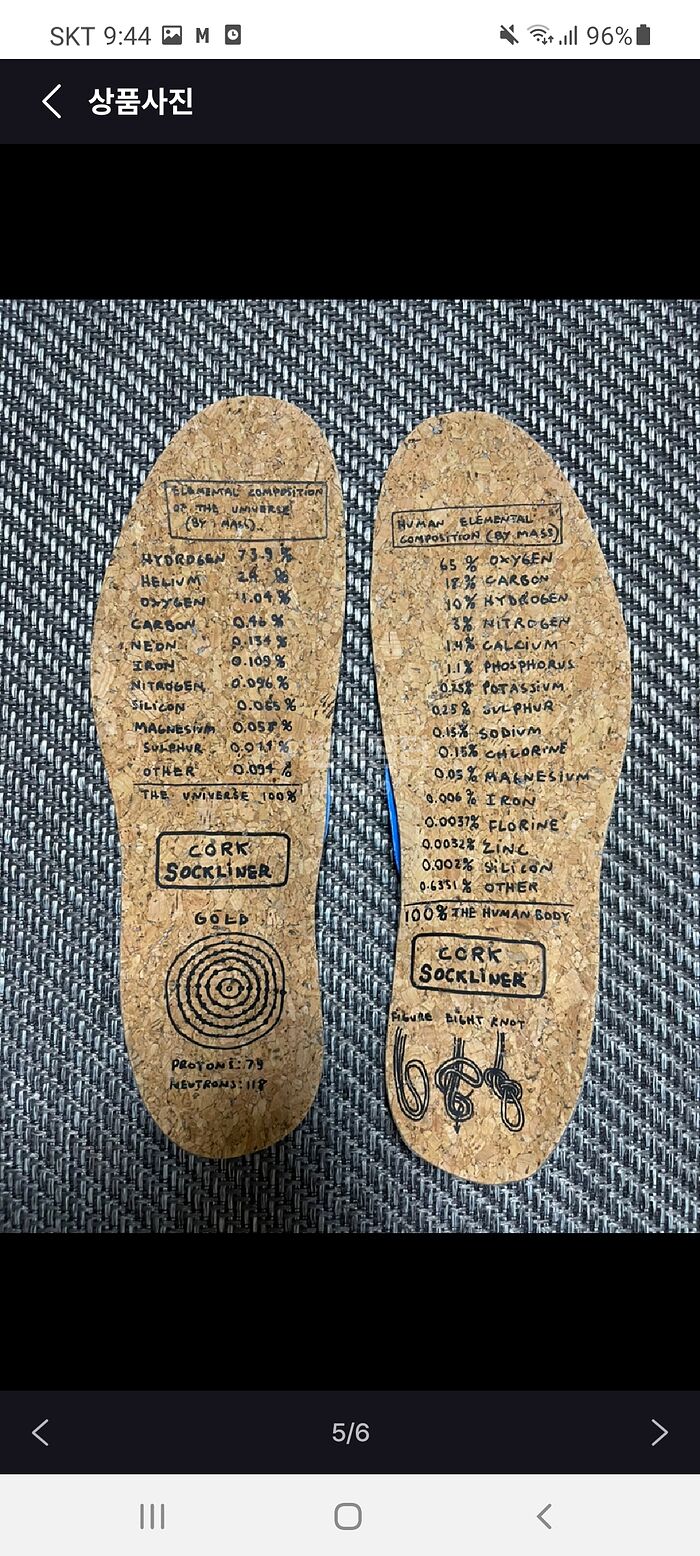 SKT 9:44 M 96%
상품사진
ELEMENTAL COMPOSITION
OF THE UNIVERSE
(BY MASS).
HYDROGEN 73.9 %
HELIUM 24. %
OXYGEN 1.04 %
CARBON 0.46 %
NEON 0.134 %
IRON 0.109 %
NITROGEN 0.096 %
SILICON 0.065 %
MAGNESIUM 0.058 %
SULPHUR 0.044 %
OTHER 0.094 %
THE UNIVERSE 100%
CORK
SOCKLINER
GOLD
PROTONS: 79
NEUTRONS: 118
HUMAN ELEMENTAL
COMPOSITION (BY MASS)
65 % OXYGEN
18 % CARBON
10% HYDROGEN
3% NITROGEN
1.4% CALCIUM
1.1% PHOSPHORUS
0.25% POTASSIUM
0.25% SULPHUR
0.15% SODIUM
0.15% CHLORINE
0.05% MAGNESIUM
0.006% IRON
0.0037% FLORINE
0.0032% ZINC
0.002% SILICON
0.6351% OTHER
100% THE HUMAN BODY
CORK
SOCKLINER
FIGURE EIGHT KNOT
5/6